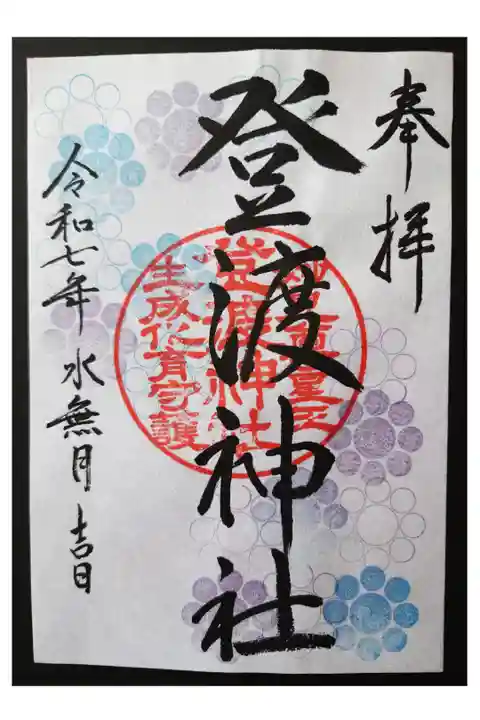 奉拝
登渡神社
登渡神社
生成化育守護
令和七年水無月吉日